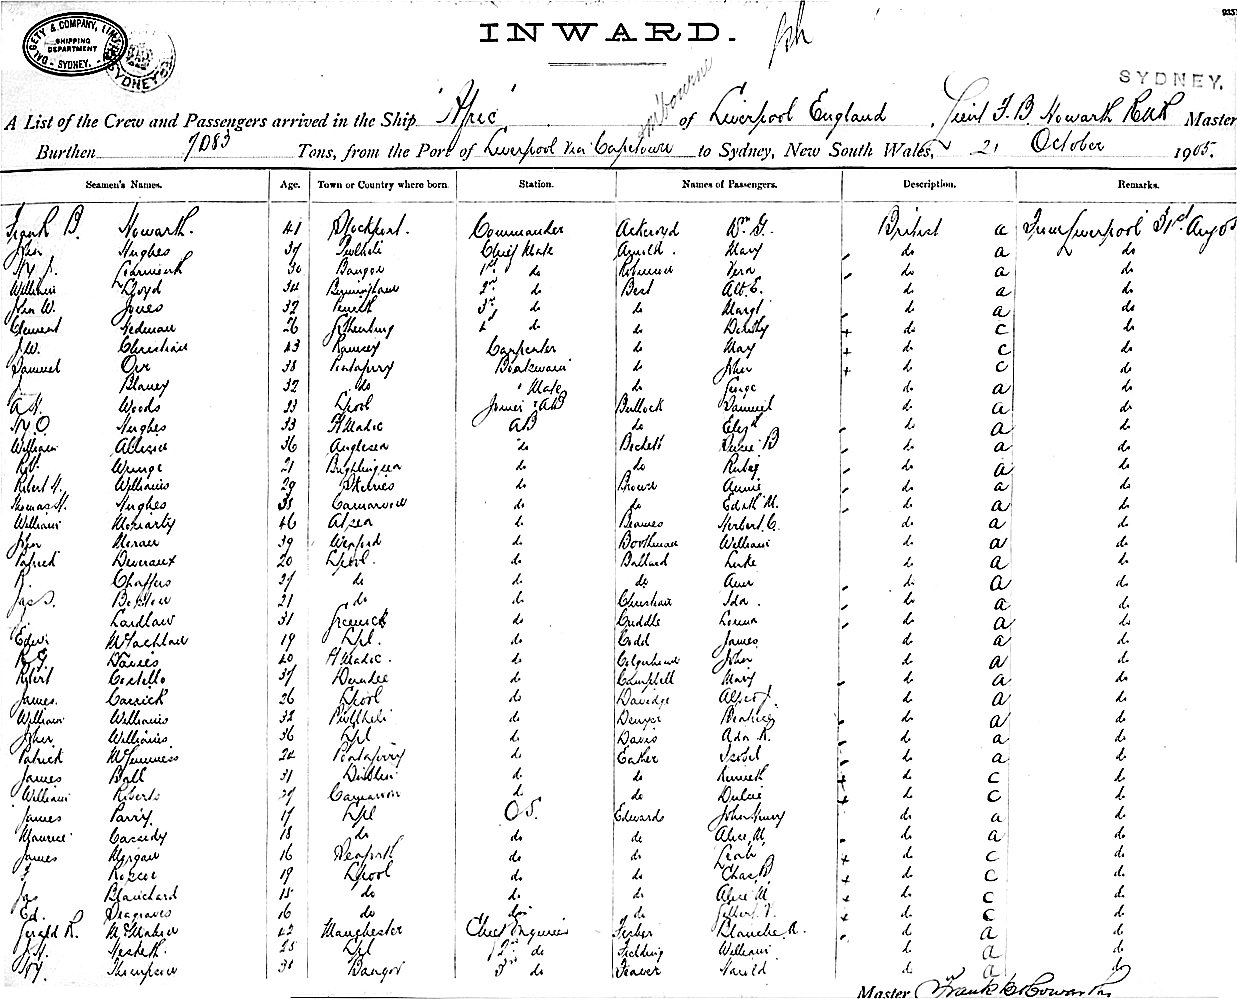 INWARD.
DALGETY & COMPANY, LIMITED
SHIPPING DEPARTMENT
SYDNEY.
SYDNEY
SYDNEY.
A List of the Crew and Passengers arrived in the Ship "Afric" of Liverpool England Lieut F. B. Howarth RNR Master
Burthen 7083 Tons, from the Port of Liverpool via Capetown to Sydney, New South Wales, 21 October 1905.
Seamen's Names. Age. Town or Country where born Station. Names of Passengers. Description. Remarks.
Frank B. Howarth. 41 Stockport. Commander Ackroyd Wm G. British a From Liverpool 31st Aug 05
John Hughes 37 Pwllheli Chief Mate Arnold. Mary do a do
Bangor 1st do Robinson Vera do a do
William Lloyd 34 Birmingham 2nd do Best do a do
John W. Jones 32 Penrith 3rd do do Margt do a do
Clement Redman 26 4th do do Dorothy do c do
J.W. Christian 43 Ramsey Carpenter do May do c do
Samuel Orr 38 Portaferry Boatswain do John do c do
Blaney 32 do " Mate do George do a do
Woods 33 Lpool Joiner & AB Bullock Samuel do a do
Hughes 33 AB do Elizth do a do
William 36 Anglesea do Beckett B do a do
21 Brightlingsea do do Ruby do a do
Robert H. Williams 29 do Brown Annie do a do
Thomas H. Hughes 38 Carnarvon do do Edith M. do a do
William Moriarty 46 do Beames Herbert C. do a do
John Moran 39 Wexford do Boothman William do a do
Patrick Devereaux 20 Lpool. do Ballard Luke do a do
Chaffers 27 do do do Ann do a do
21 do do Christian Ida. do a do
Laidlaw 31 do Cuddle do a do
Edwin McLachlan 19 Lpl. do Codd James do a do
Davies 40 do Colquhoun John do a do
Robert Costello 37 Dundee do Campbell Mary do a do
James. Carrick 26 Lpool do Davidge do a do
William Williams 32 Pwllheli do Denyer Beatrice do a do
John Williams 36 Lpl do Davis Ada do a do
Patrick McGuinness 24 Portaferry do Eather Isobel do a do
James Ball 31 Dublin do do Kenneth do c do
William Roberts 27 Carnarvon do do Dulcie do c do
James Parry. 17 Lpl O.S. Edwards John Henry do a do
Maurice Cassidy 18 do do do Alice M. do a do
James Morgan 16 Seaforth do do Leah do c do
Roscoe 19 Lpool do do Chas B. do c do
Jas Blanchard 15 do do do Alice M do c do
Ed. Seagraves 16 do do do do c do
Gerald R. McMahon 42 Manchester Chief Engineer Fisher Blanche A. do a do
Hesketh. 25 Lpl 2nd do Fielding William do a do
Thompson 30 Bangor 3rd do Harold do a do
Master Frank B Howarth